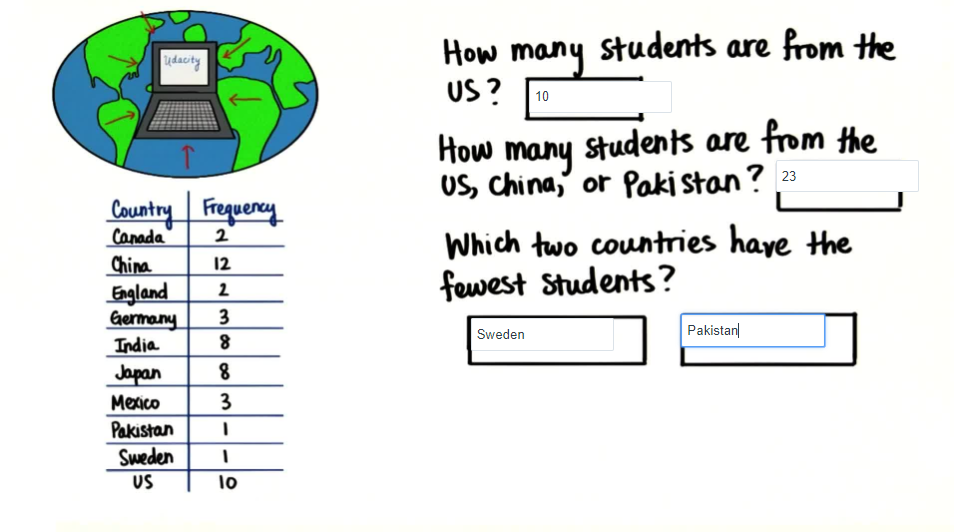 Udacity
Country Frequency
Canada 2
China 12
England 2
Germany 3
India 8
Japan 8
Mexico 3
Pakistan 1
Sweden 1
US 10
How many students are from the
US? 10
How many students are from the
US, China, or Pakistan? 23
Which two countries have the
fewest students?
Sweden Pakistan